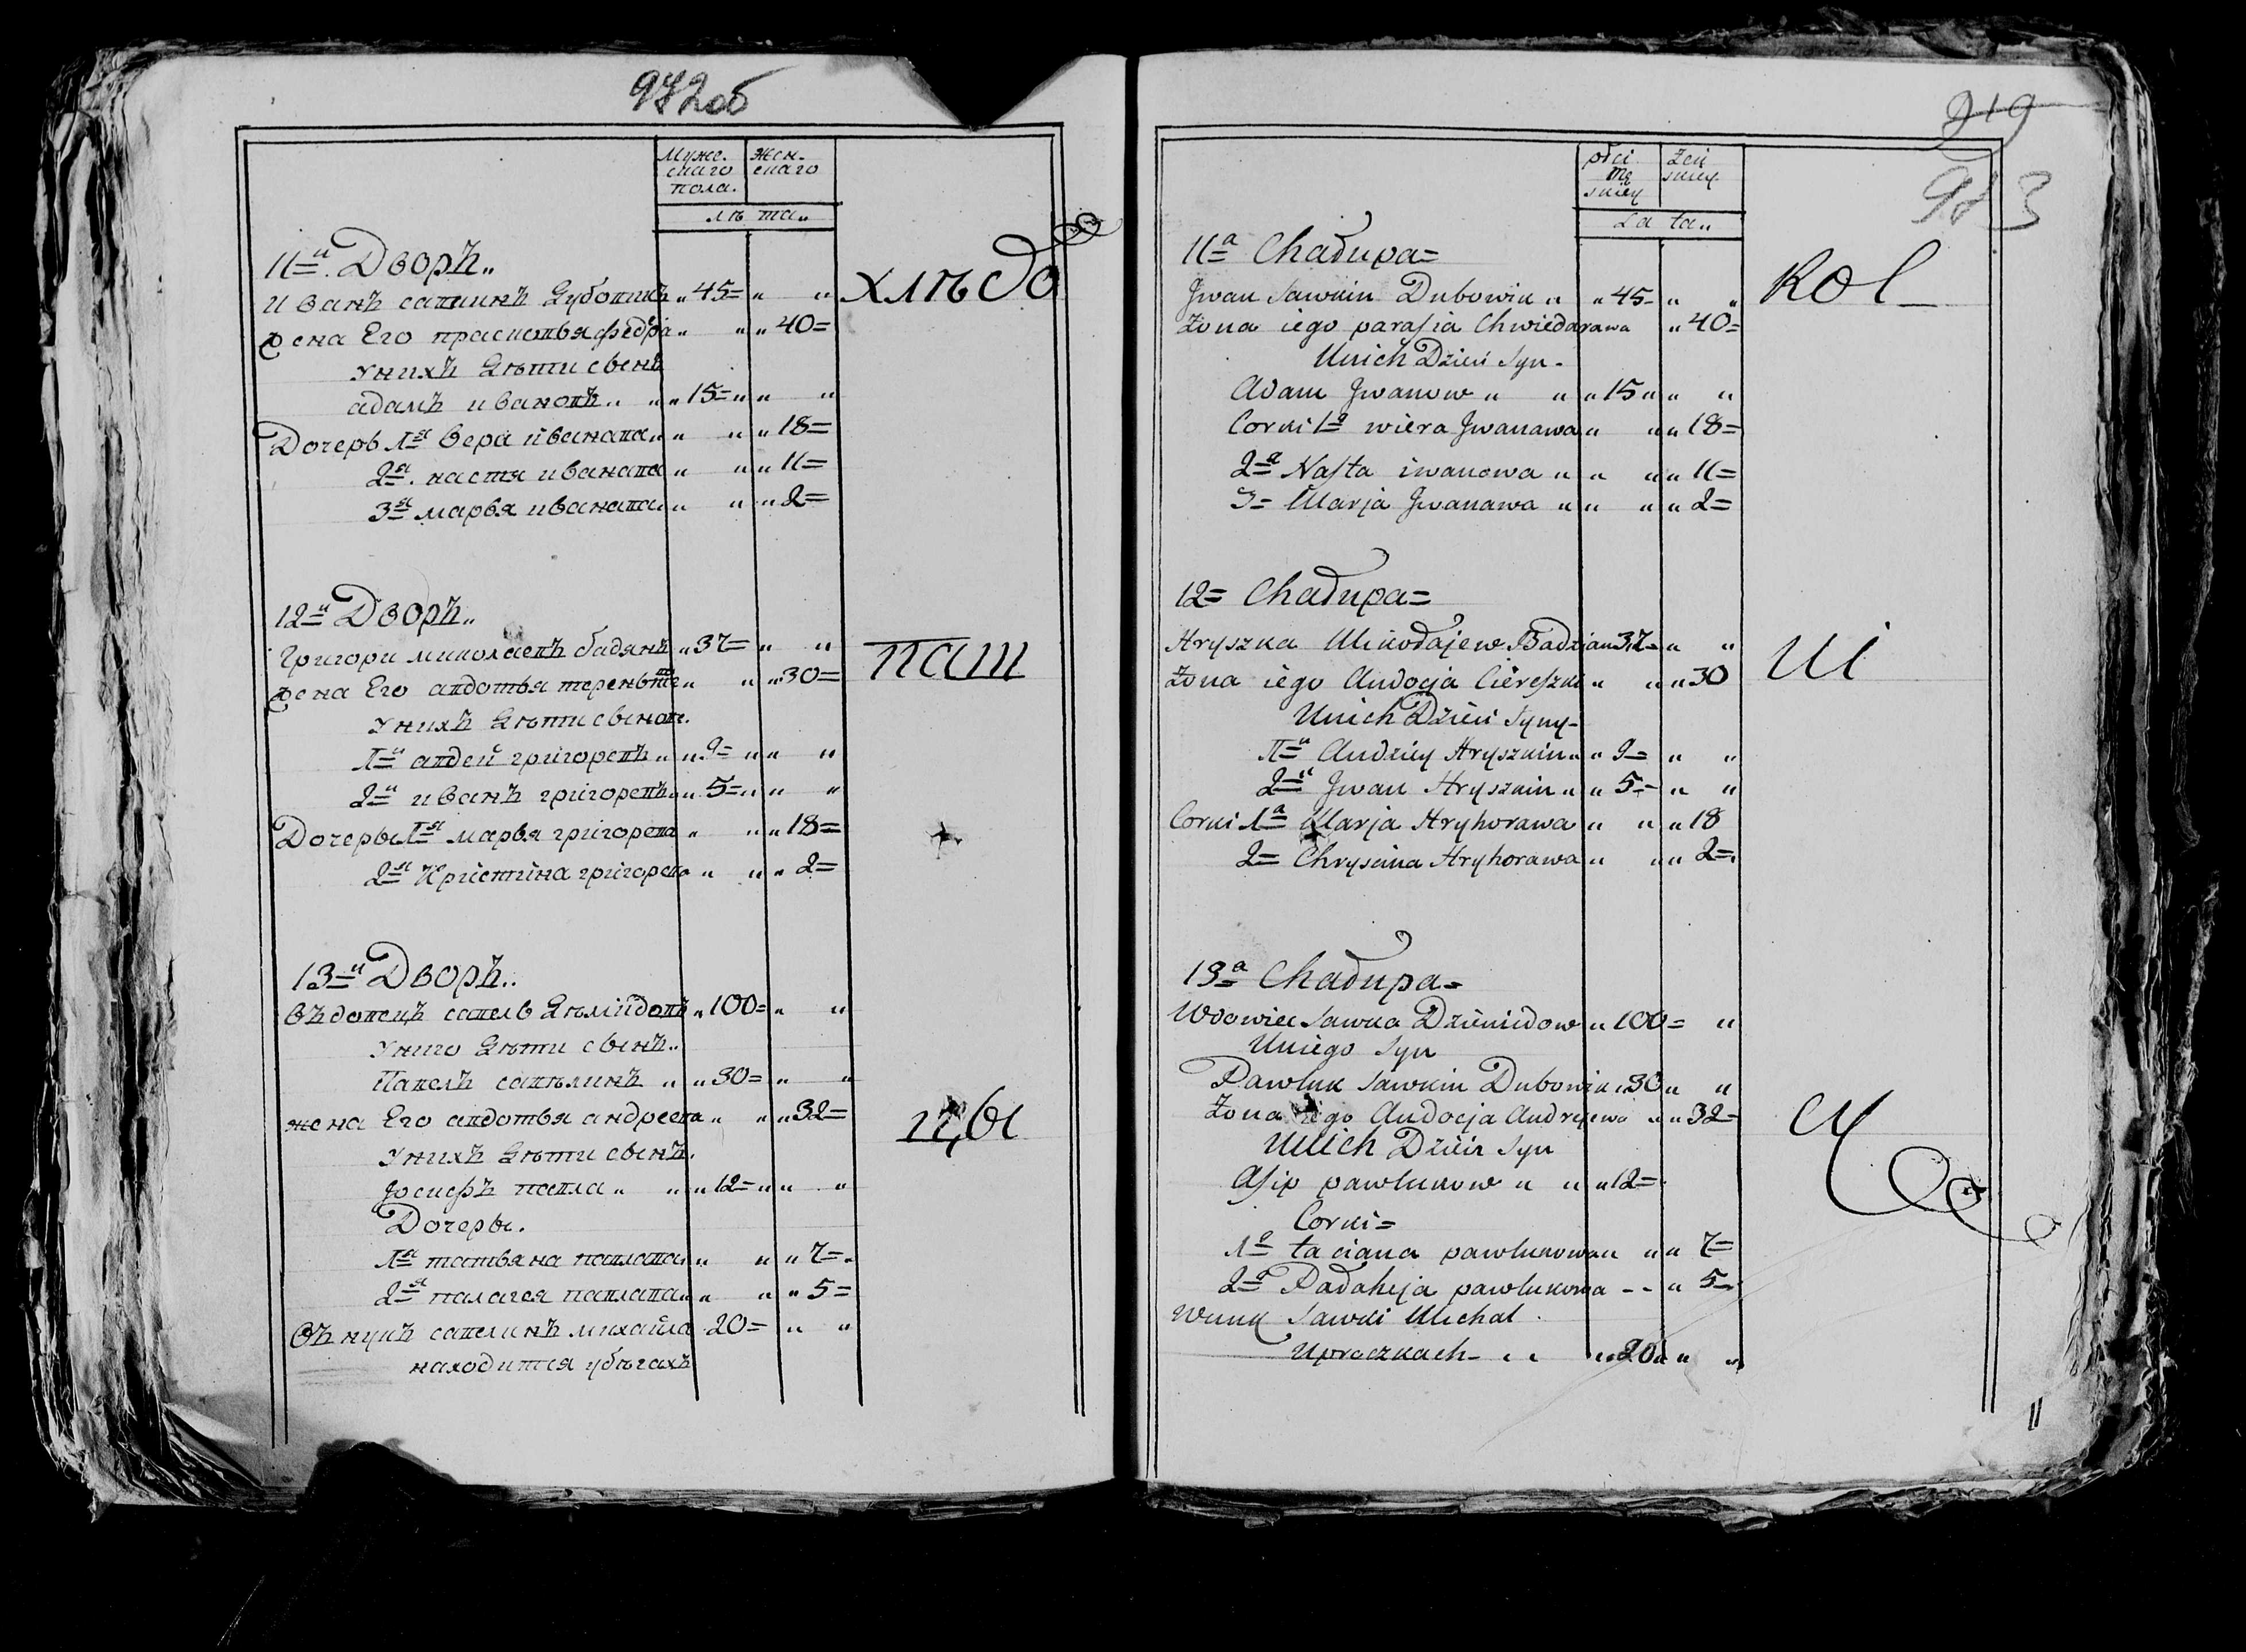 972 об
Мужескаго пола. Женскаго
лѣта„
11й Дворъ„
Иванъ савкинъ Дубовикъ „ 45= „ „
жена Его прасковья федора „ „ „ 40=
Унихъ Дѣти свенъ
адамъ ивановъ „ „ „ 15= „ „ „
Дочерь 1я вера ивванава „ „ „ „ 18=
2я настя иванава „ „ „ 11=
3я марья иванава „ „ „ 2=
хлѣбо
12й Дворъ„
Григори миколаевъ бадянъ „ 37= „ „
жена Его авдотья терень „ „ „ 30=
Унихъ Дѣти свенов.
1й авдей григоревъ „ „ 9= „ „ „
2й иванъ григоревъ „ 5= „ „ „
Дочеры 1я марья григорева „ „ „ 18=
2я Кристина григорева „ „ „ 2=
паш
13й Дворъ„
вѣдовецъ савель Дѣмидовъ „ 100= „ „
Униго Дѣти свенъ„
Павелъ савѣлинъ „ „ 30= „ „
жена Его авдотья андреева „ „ „ 32=
Унихъ Дѣти свенъ.
Иосифъ павла „ „ „ 12= „ „ „
Дочеры.
1я татьяна павлава „ „ „ 7=
2я палагея павлава „ „ „ 5=
Вѣнукъ савелинъ михайла 20= „ „
находится убѣгахъ
цы
919
973
płci męskiey żeńskiey
Lata„
11a Chałupa=
Jwan Sawkin Dubowik „ „ 45= „ „
Żona iego parasia Chwiedarawa „ 40=
Unich Dzieci Syn-
Adam Jwanow „ „ „ 15 „ „ „
Corki 1a wiera Jwanawa „ „ „ 18=
2a Nasta iwanowa „ „ „ „ 11=
3= Marja Jwanawa „ „ „ „ 2=
Kol
12= Chałupa=
Hryszka Mikołajew Badzian 37= „ „
Żona iego Audocja Ciereszki „ „ „ 30
Unich Dzieci Syny-
1й Andziey Hryszkin „ „ 9= „ „
2й Jwan Hryszkin „ „ 5= „ „
Corki 1a Marja Hryhorawa „ „ „ 18
2= Chryscina Hryhorawa „ „ „ 2=
ni
13a Chałupa=
Wdowiec Sawka Dziemidow „ 100= „
Uniego Syn
Pawluk Sawkin Dubowik „ 30 „ „
Żona iego Audocja Andrejewa „ „ 32=
Unich Dzieci Syn
Asip pawlukow „ „ „ 12=
Corki=
1a taciana pawlukowa „ „ 7=
2a Pałaheja pawlukowa - - „ 5=
Wnuk Sawki Michał
Upraczkach - „ „ „ 20 „ „ „
cy